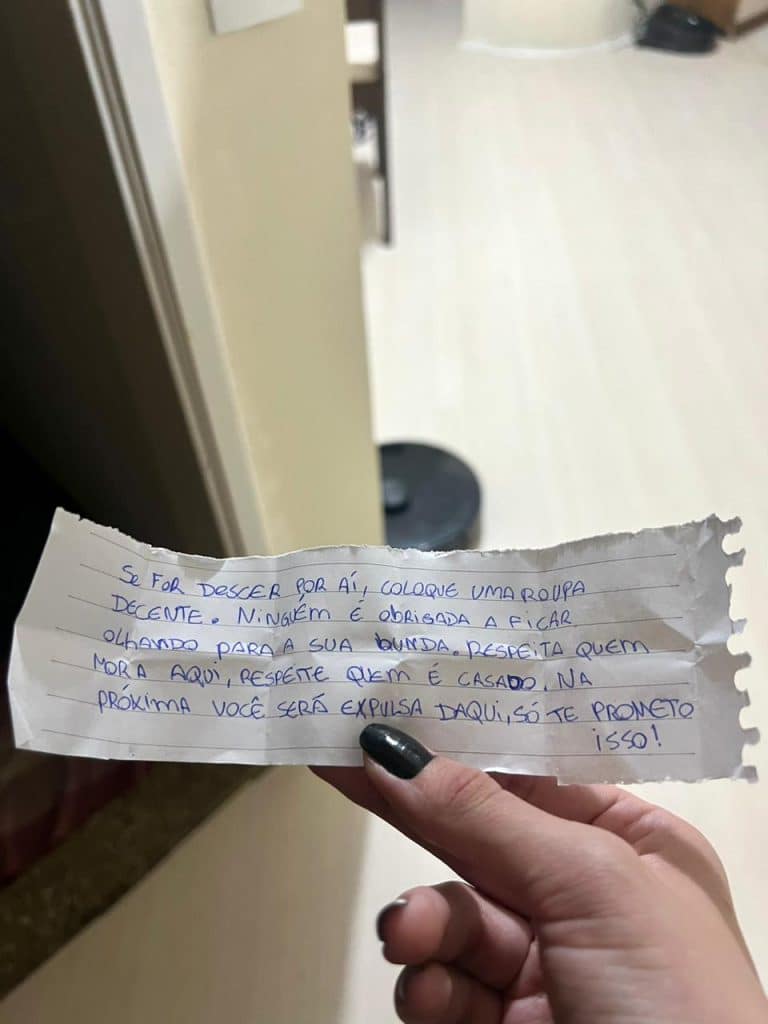 SE FOR DESCER POR AÍ, COLOQUE UMA ROUPA
DECENTE. NINGUÉM É OBRIGADA A FICAR
OLHANDO PARA A SUA BUNDA. RESPEITA QUEM
MORA AQUI, RESPEITE QUEM É CASADO. NA
PRÓXIMA VOCÊ SERÁ EXPULSA DAQUI, SÓ TE PROMETO
ISSO!